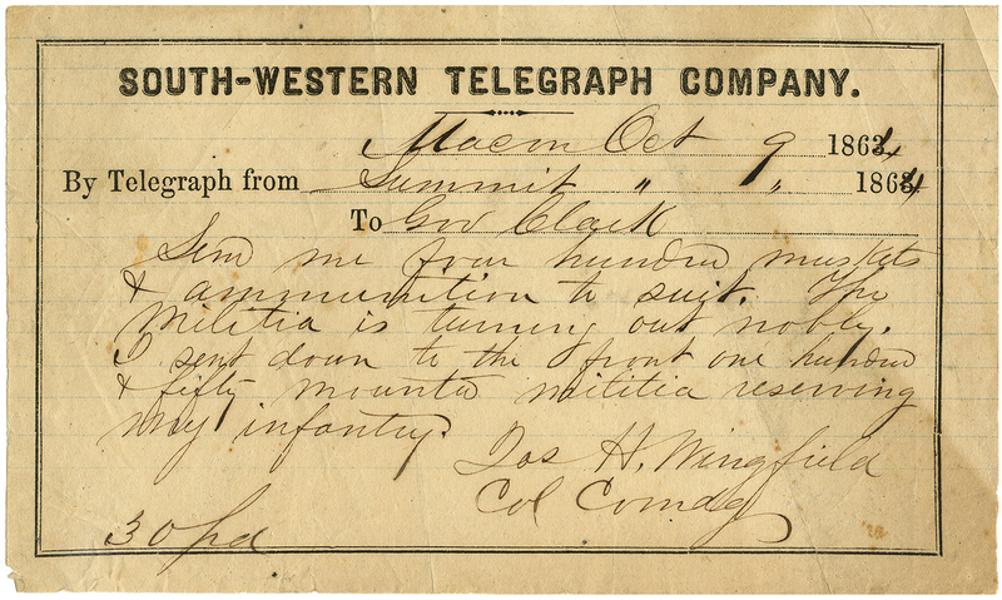 SOUTH-WESTERN TELEGRAPH COMPANY.
Macon Oct 9 1864
By Telegraph from Summit " " 1864
To Gov Clark
Send me four hundred muskets
& ammunition to suit. The
Militia is turning out nobly.
I sent down to the front one hundred
& fifty mounted militia reserving
my infantry.
Jos H. Wingfield
Col Comdg
30 pd